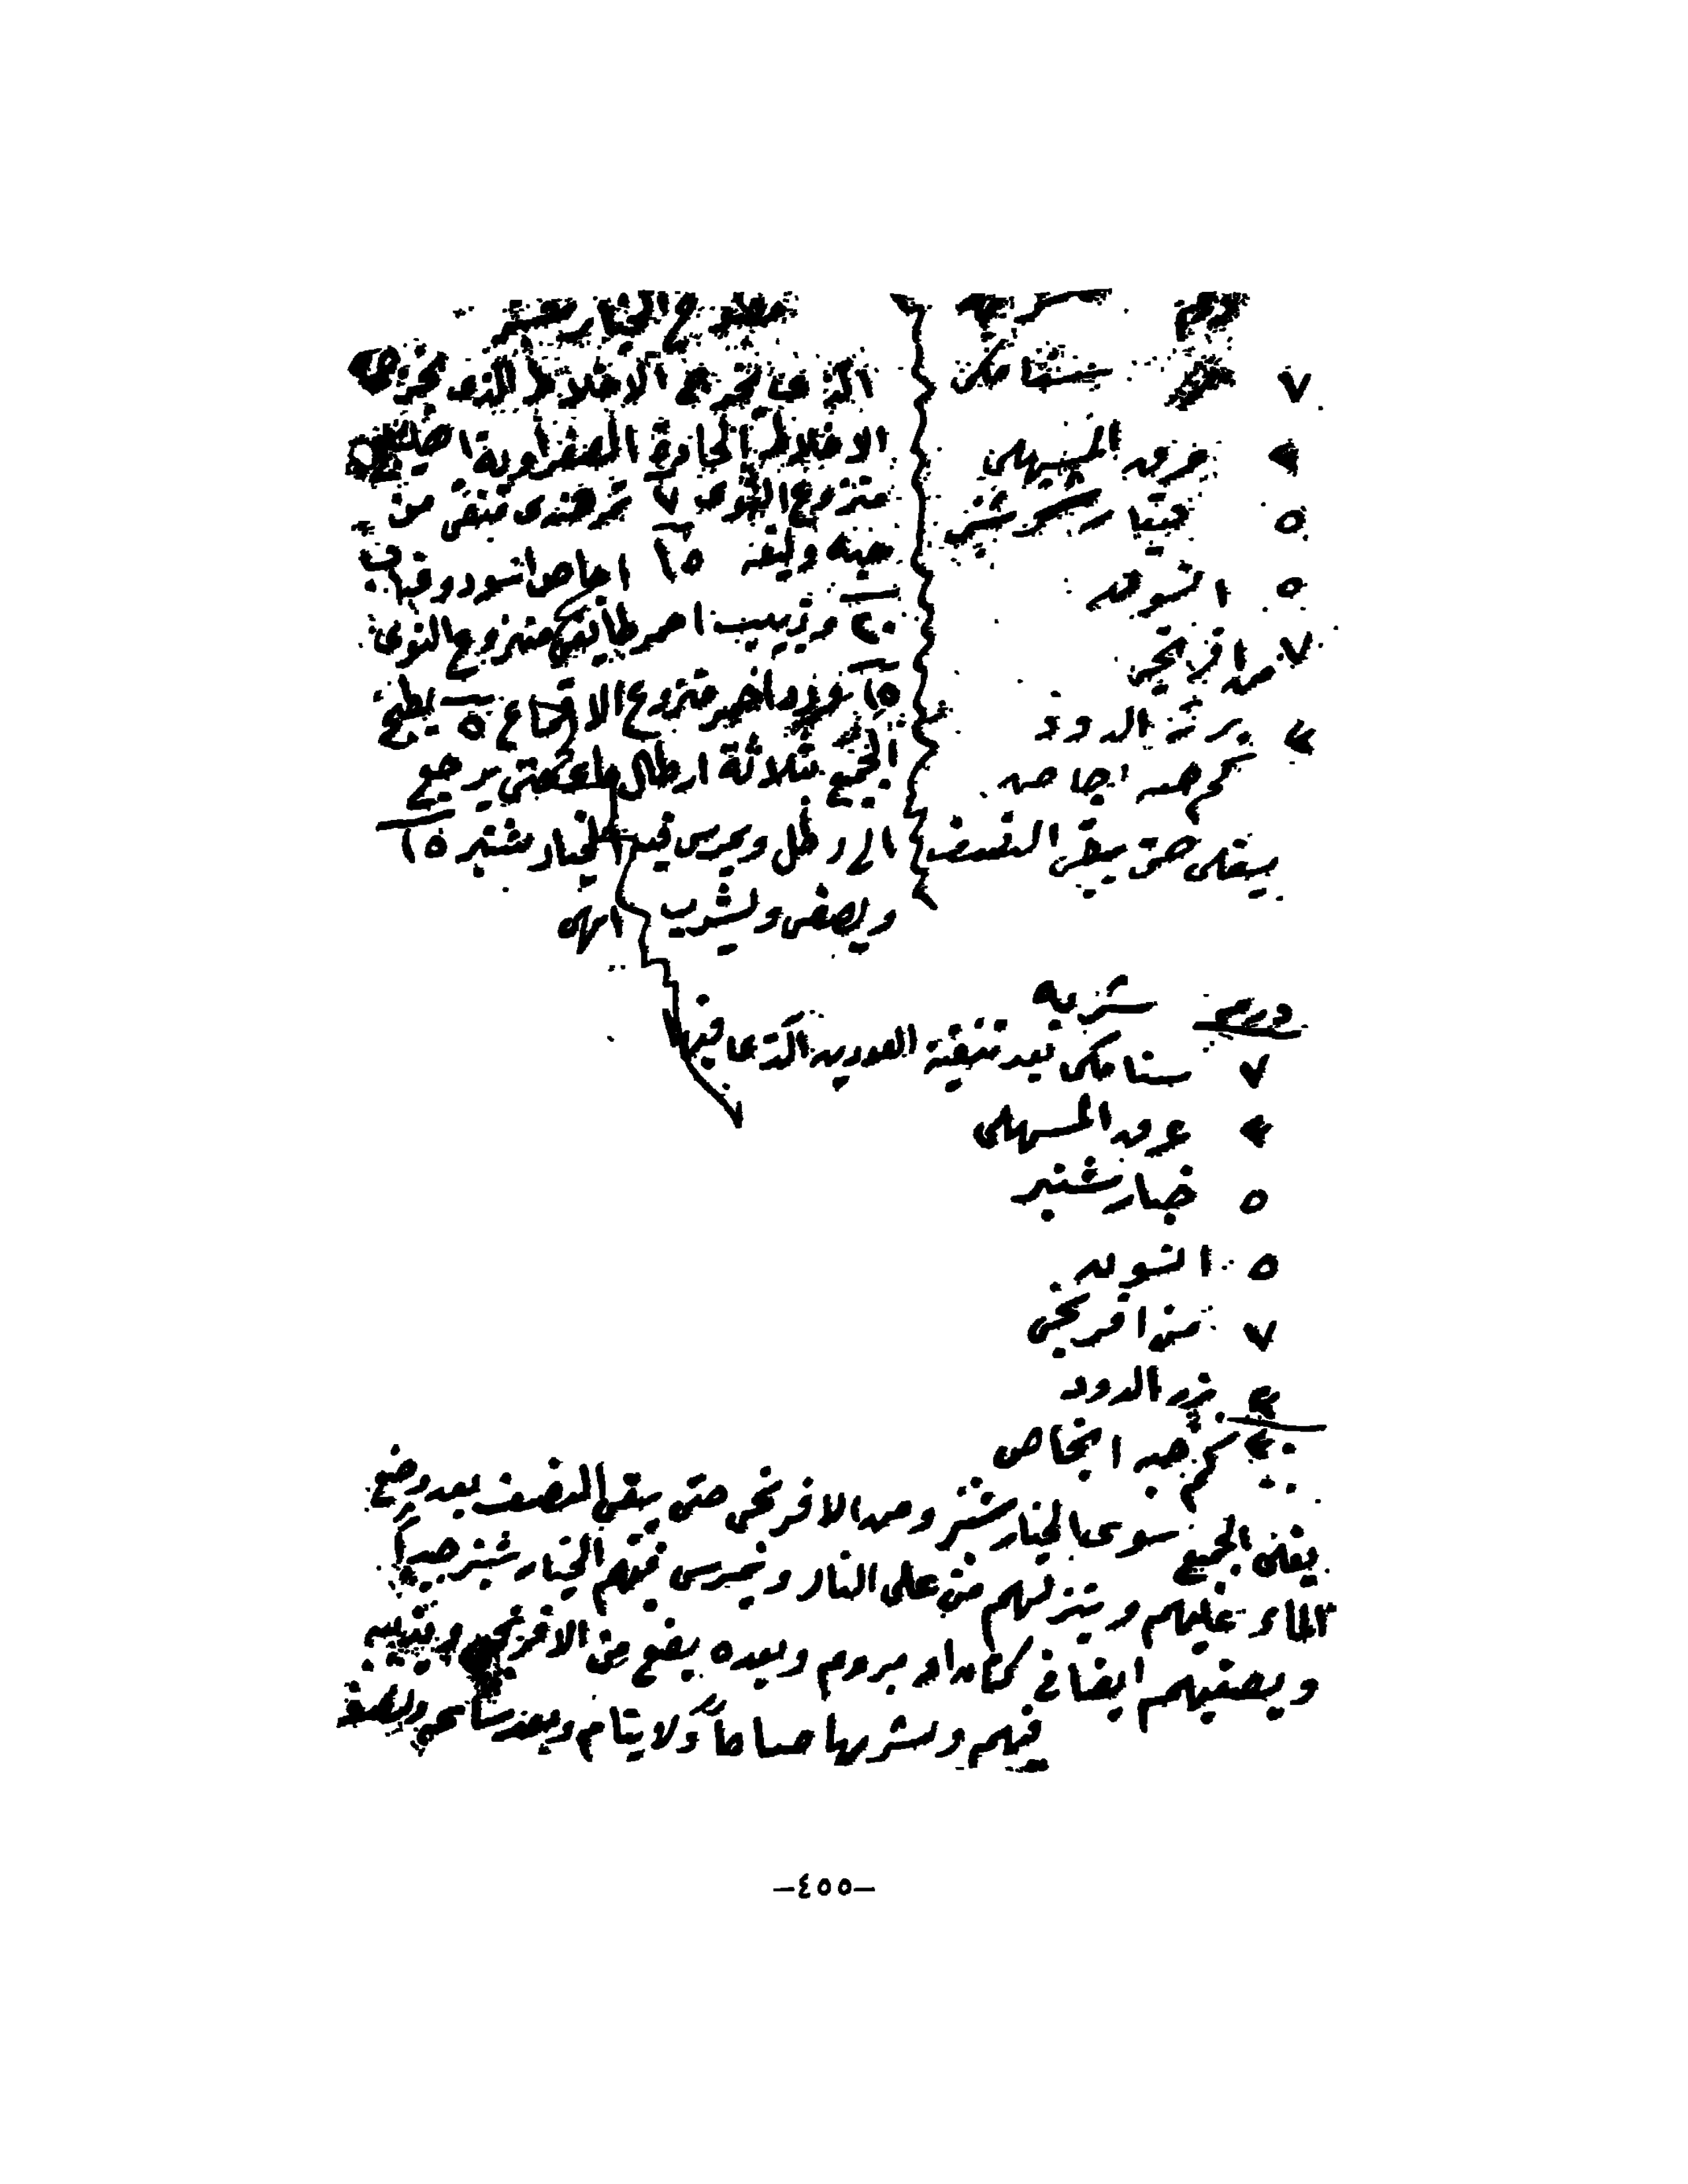 درهم شربه
٧ سنامكى
عرق المسهلى
٥ خيار شنبر
٥ انسون
٧ من افرنجى
بزر الدود
كم حبه اجاص
يغلى حتى يبقى النصف
مطبوخ الخيار شنبر
الذى يخرج الاخلاط الذى يخرج
الاخلاط الحادة الصفراوية
منزوع النوى ٧ تمر هندى منقى من
حبه وليفه ١٥ اجاص اسود
٢٠ وزبيب احمر طائفى منزوع النوى
١٥ ورد احمر منزوع الاقماع ٥ يطبخ
الجميع بثلاثة ارطال ماء حتى يرجع
الى رطل ويمرس فيه الخيار شنبر ١٥
ويصفى ويشرب
درهم شربه
٧ سنامكى بعد تنقية العودين الذى فيها
عرق المسهلى
٥ خيار شنبر
٥ انسون
٧ من افرنجى
٢ بزر الدود
٢٠ كم حبه انجاص
يغلى الجميع سوى الخيار شنبر ومن الافرنجى حتى يبقى النصف بعد وضع
الماء عليهم وينزلهم من على النار ويمرس فيهم الخيار شنبر جيداً
ويصفيهم ايضا فى وبعده يضع من الافرنجى ويذيبه
فيهم ويشربها صباحاً ولا ينام وبعد
-٤٥٥-